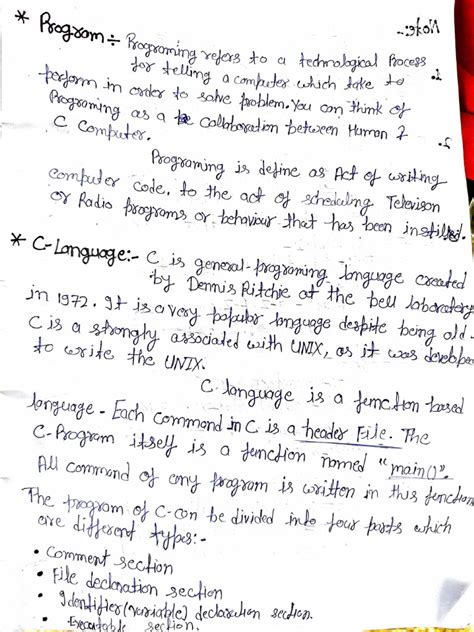 * Program ÷ Programing refers to a technological Process
for telling a computer which take to
perform in order to solve problem. You can think of
Programing as a collaboration between Human &
C Computer.
Programing is define as Act of writing
computer code, to the act of scheduling Television
or Radio programs or behaviour that has been instilled.
* C-Language:- C is general-programing language created
by Dennis Ritchie at the bell laboratory
in 1972. It is a very popular language despite being old.
C is a strongly associated with UNIX, as it was developed
to write the UNIX.
C language is a function based
language - Each command in C is a header File. The
C-Program itself is a function named "main()".
All command of any program is written in this function
The program of C-can be divided into four parts which
are different types:-
• Comment section
• File declaration section
• Identifier (variable) declaration section.
• Executable section.
Note:-
1.
2.